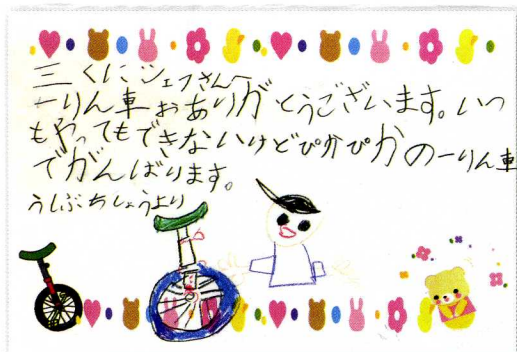 三くにシェフさんへ
一りん車おありがとうございます。いつ
もやってもできないけどぴかぴかの一りん車
でがんばります。
うしぶちしょうより